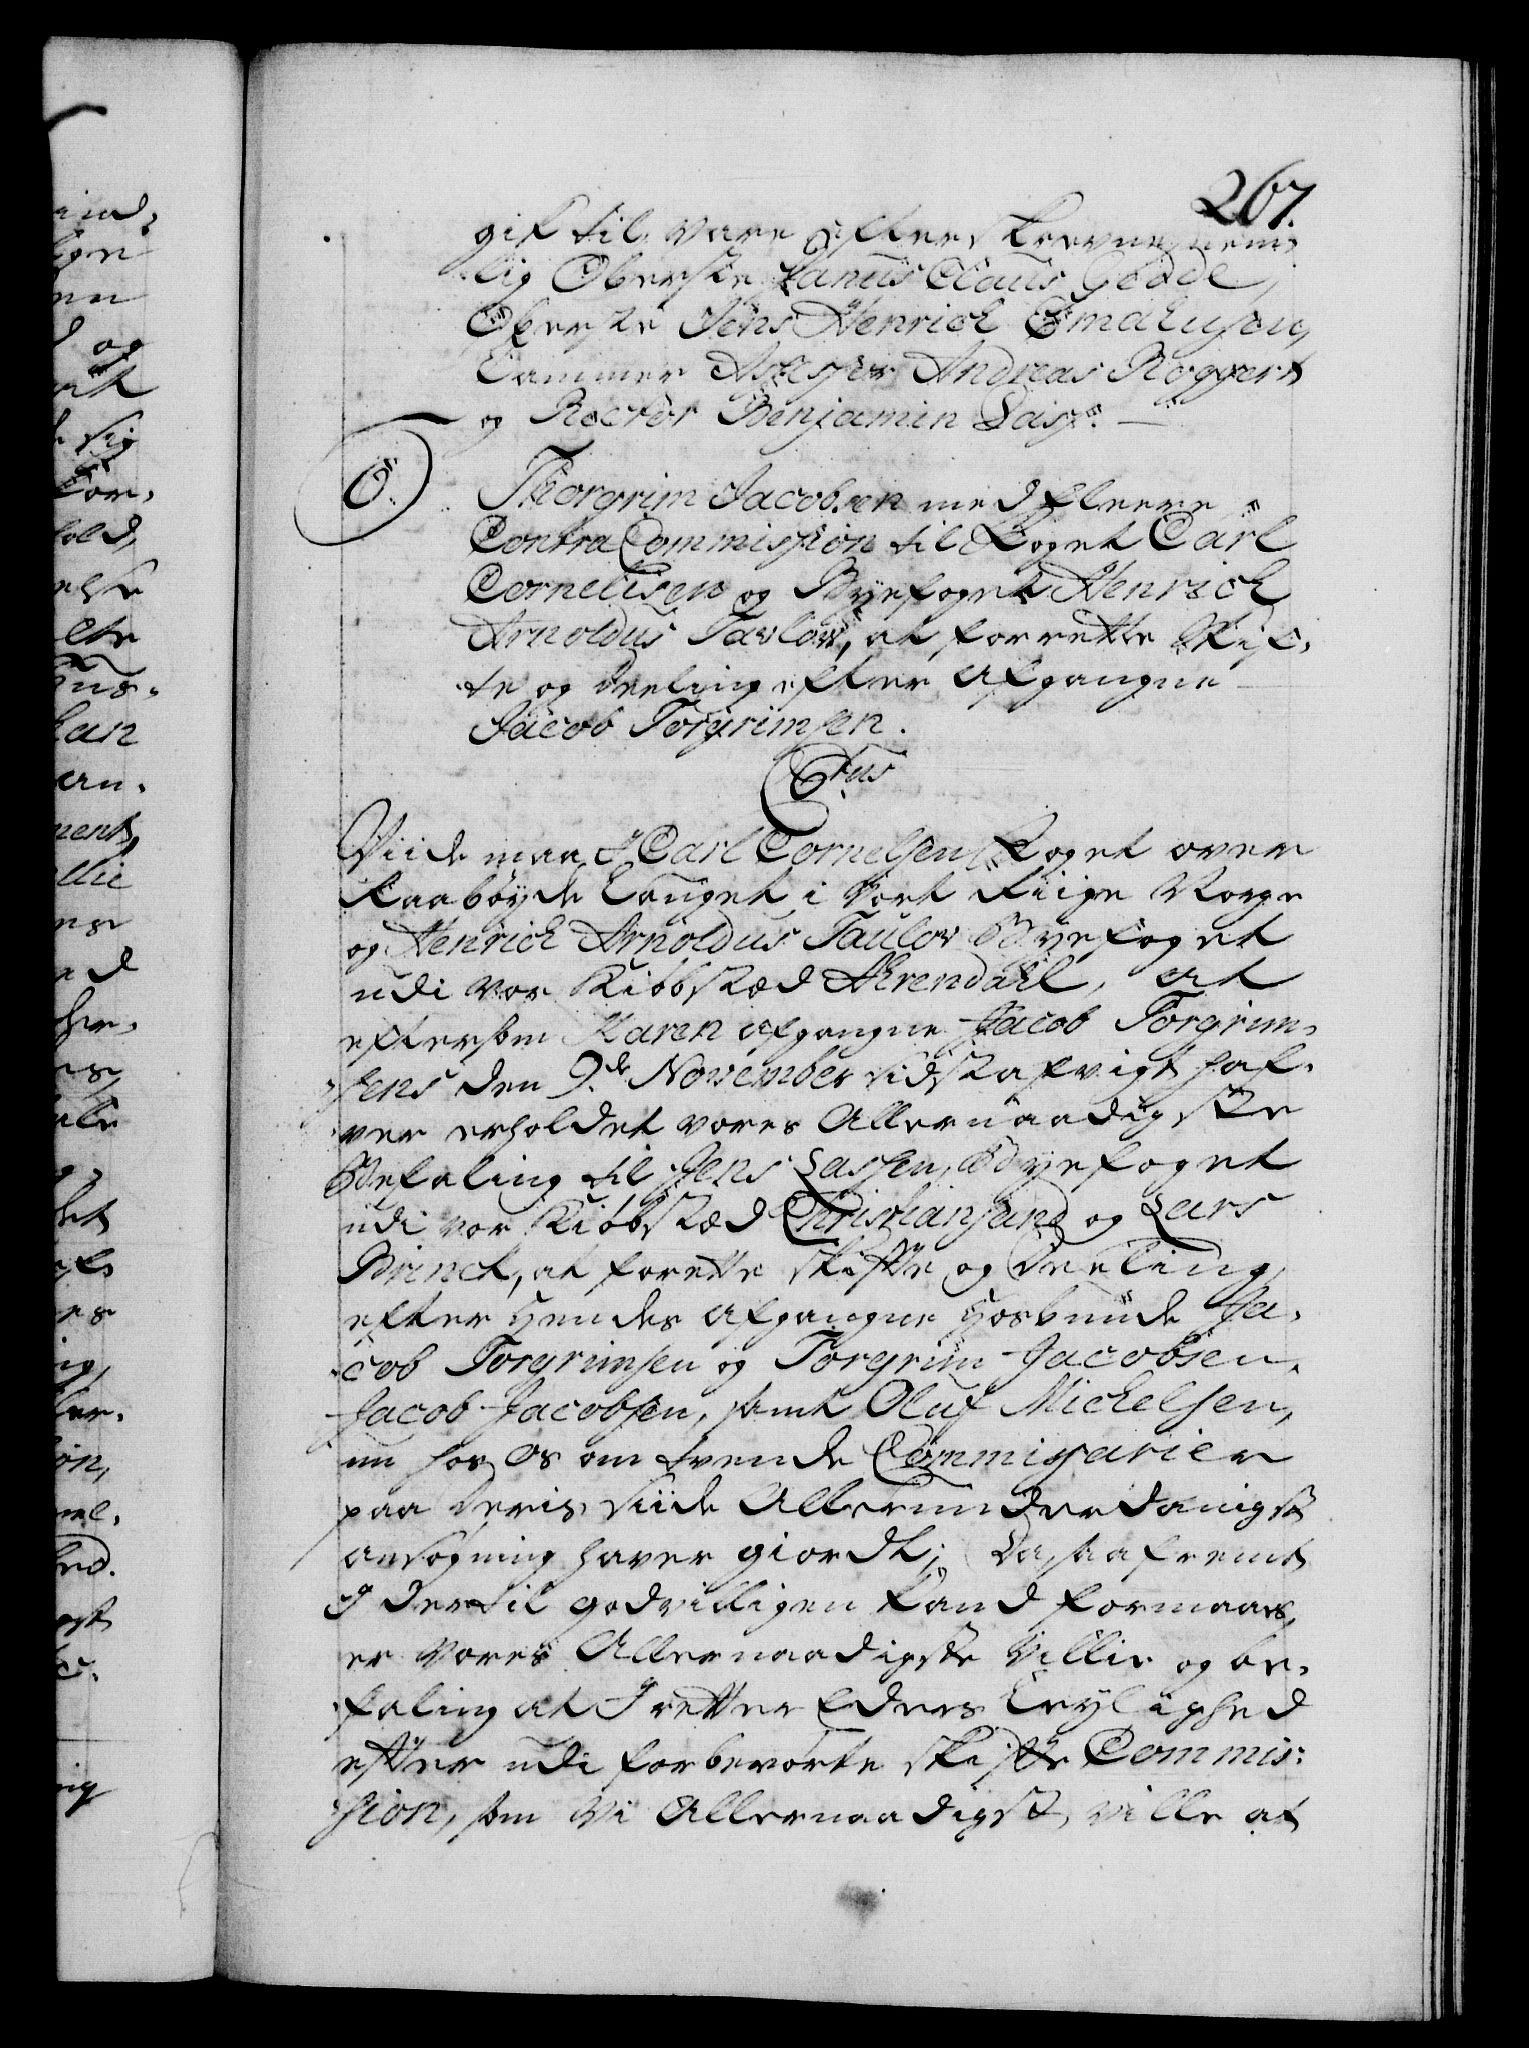 267.
gif til være efterskrevne, nem¬
lig Oberste Hanüs Claus Gedde,
Oberste Jens Henrich Emahusen,
Cammer Assessor Andreas Roggert
og Rector Benjamin Dass. —
O.
Thorgrim Jacobsen med fleere
Contra Commission til Foget Carl
Cornelisen og Byefoget Henrich
Arnoldus Taulow, at forrette Skif¬
te og deeling efter afgangne
Jacob Torgrimsen.
C6tus
Viide maa I Carl Cornelsen Foget over
Raabøyde Lauget, i vort Riige Norge
og Henrich Arnoldus Taulov Byefoget
udi vor Kiøbstæd Arendall, at
eftersom Karen afgangne Jacob Torgrim¬
sens den 9de November sidst afvigt haf¬
ver erholdet vores Allernaadigste
Befaling til Jens Lassen, Byefoget
udi vor Kiøbstæd Christiansand og Lars
Brinck, at forette skifte og Deeling
efter hendes afgangne Hosbunde Ja¬
cob Torgrimsen og Torgrim Jacobsen,
Jacob Jacobsen, samt Oluf Michelsen,
nu hos os om tvende Commissarier
paa deris siide Allerunderdanigst
ansøgning haver giordt; Da, saafremt
I dertil godvilligen kand formaaes,
er vores Allernaadigste villie og be¬
faling at I retter Eders Leylighed
efter udi forbevørte skifte Commis¬
sion, som vi Allernaadigst ville at